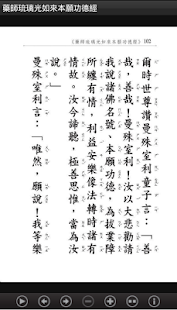 藥師琉璃光如來本願功德經
《藥師琉璃光如來本願功德經》 102
爾時世尊讚曼殊室利童子言：「善
哉，善哉！曼殊室利！汝以大悲勸請
我說諸佛名號、本願功德，為拔業障
所纏有情，利益安樂像法轉時諸有
情故。汝今諦聽，極善思惟，當為汝
說。」
曼殊室利言：「唯然，願說！我等樂